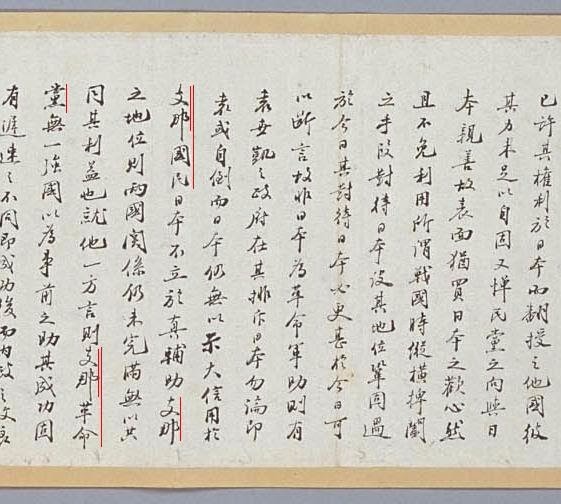 已許其權利於日本而翻授之他國彼
其力未足以自固又憚民黨之向與日
本親善故表面猶買日本之歡心然
且不免利用所謂戰國時縱橫捭闔
之手段對待日本設其地位鞏固過
於今日其對待日本必更甚於今日可
以斷言故非日本為革命軍助則有
袁世凱之政府在其排斥日本勿論即
袁或自倒而日本仍無以示大信用於
支那國民日本不立於真輔助支那
之地位則兩國関係仍未完滿無以共
同其利益也就他一方言則支那革命
黨無一強國以為事前之助其成功固
有遲速之不同即成功後而內政之改良